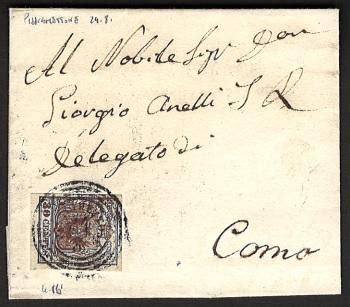 PIZZIGHETTONE 29.8.
Al Nobile Sigr Don
Giorgio Anelli I R
Delegato di
Como